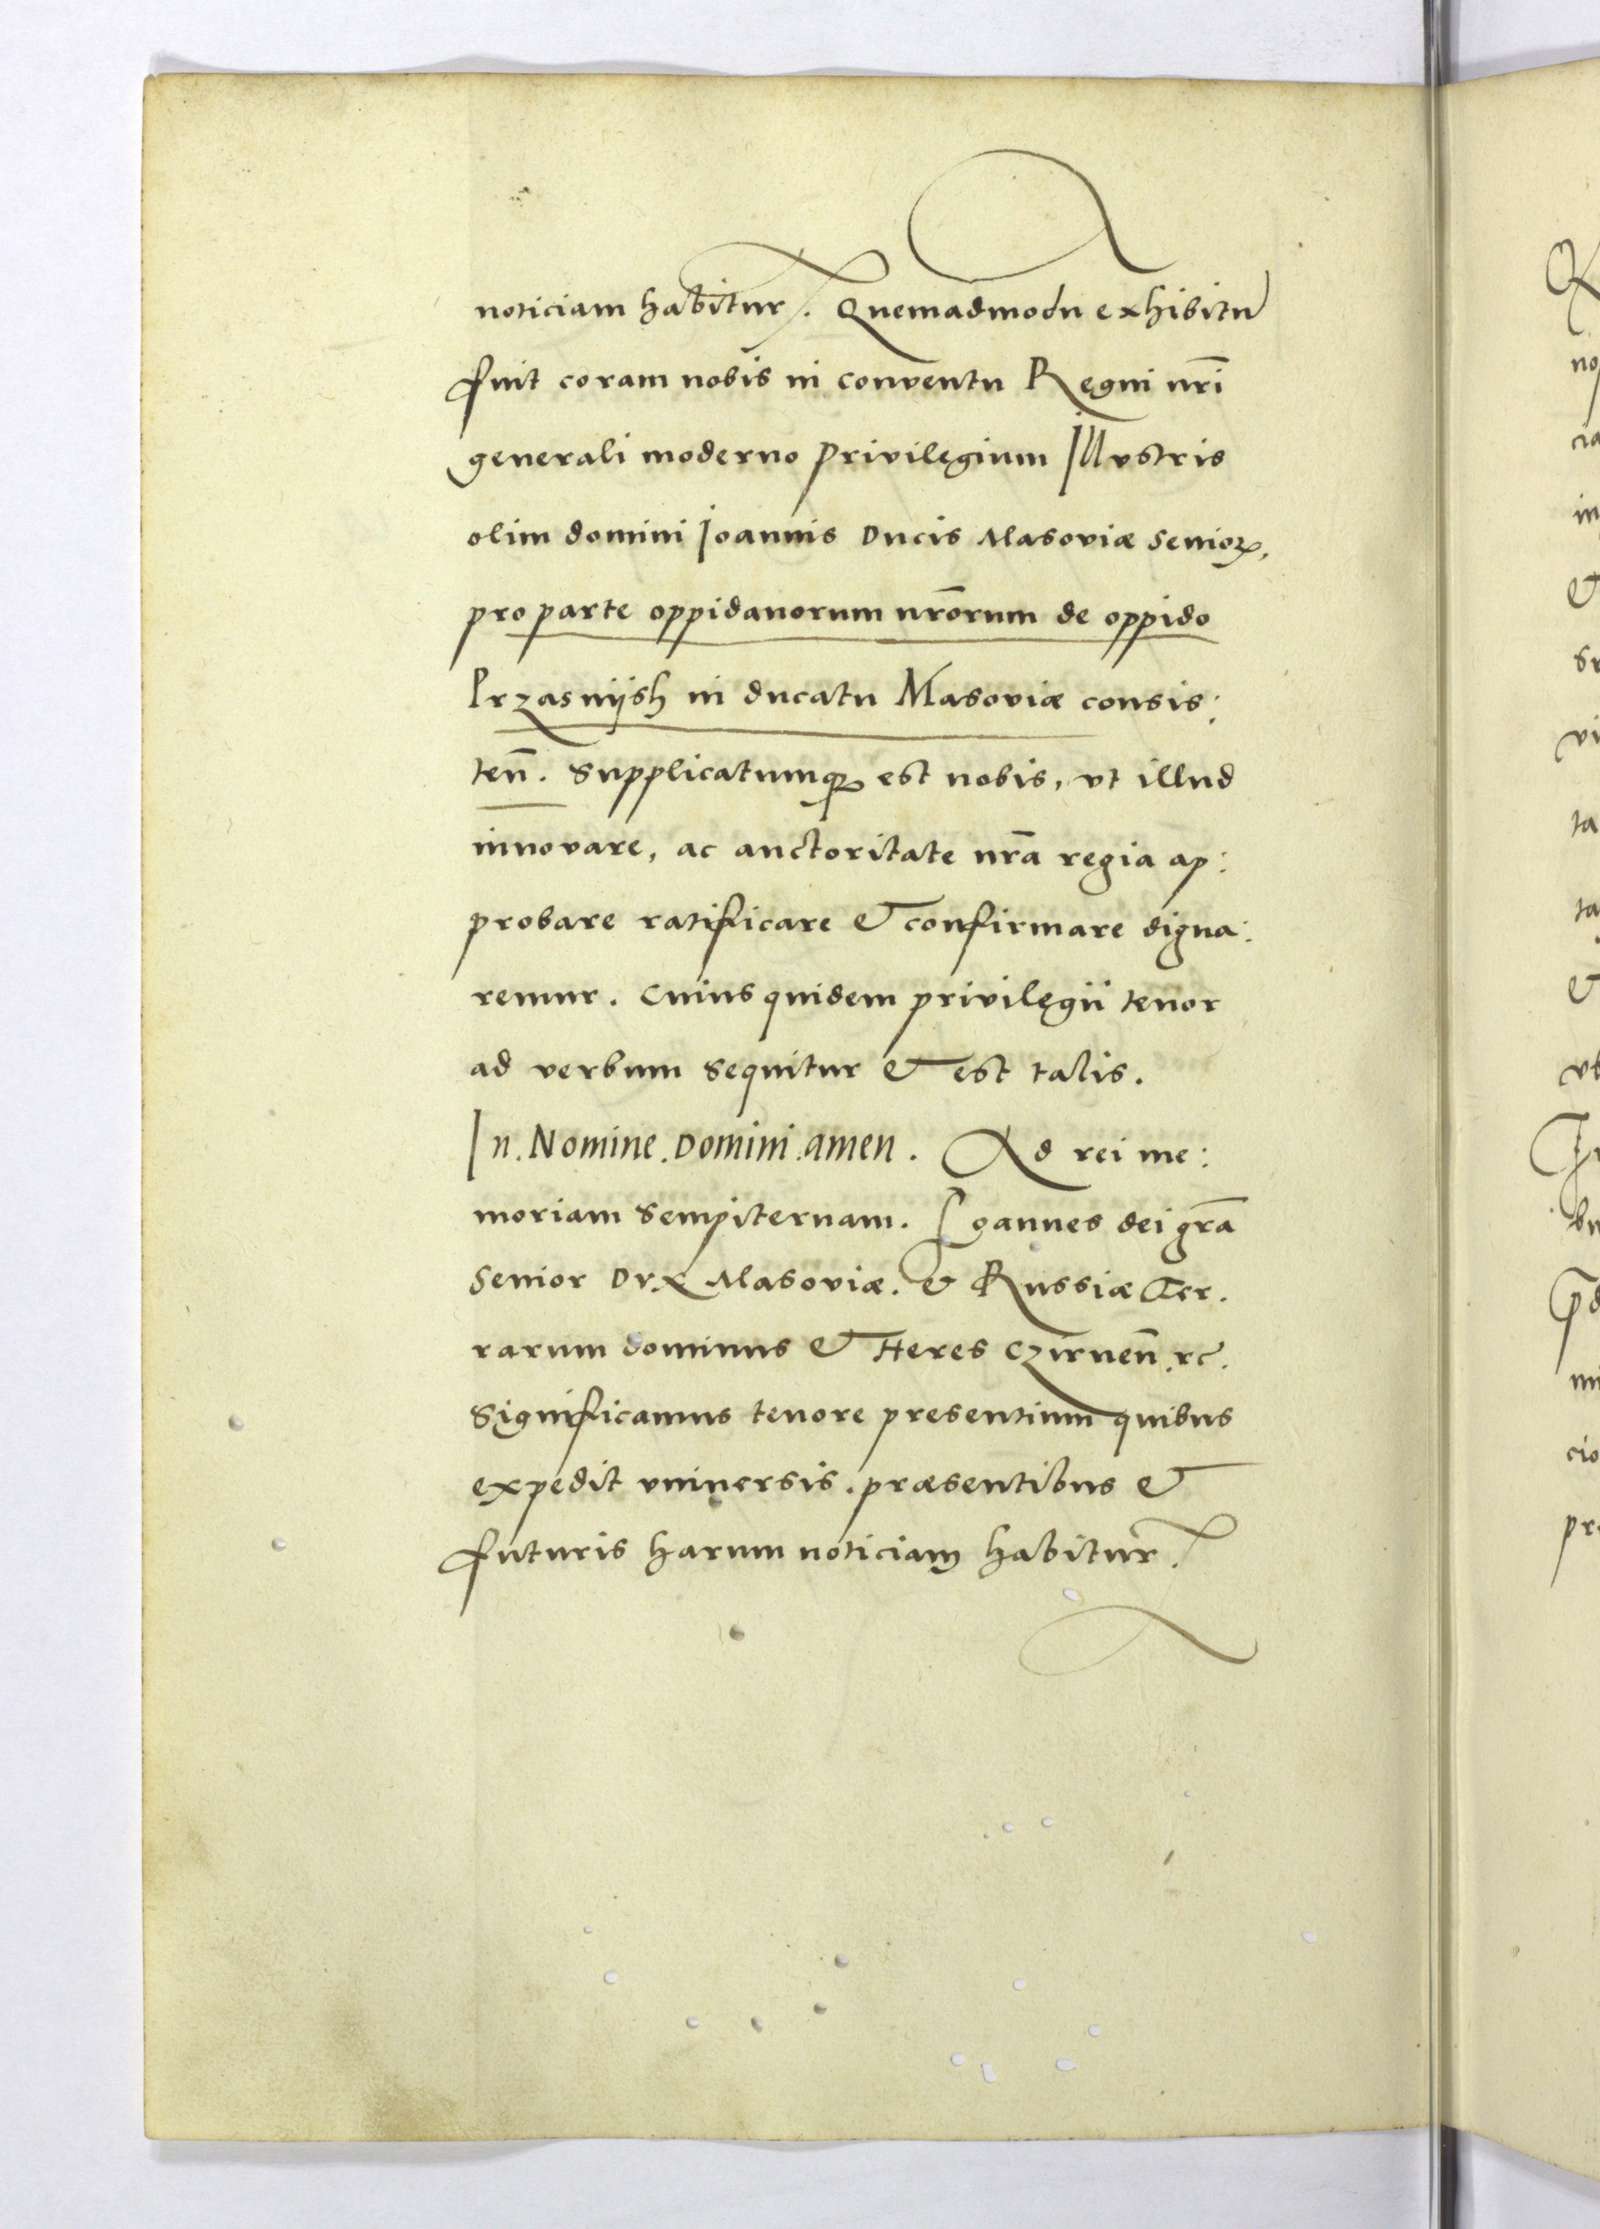 noticiam habitur̃. Quemadmodū exhibitū
fuit coram nobis in conventu Regni nr̃i
generali moderno privilegium Illvstris
olim domini Ioannis Ducis Masoviæ senioꝝ,
pro parte oppidanorum nr̃orum de oppido
Przasnijsh in ducatu Masoviæ consis:
teñ. Supplicatumqꝫ est nobis, vt illud
innovare, ac auctoritate nr̃a regia ap:
probare ratificare & confirmare digna:
remur. Cuius quidem privilegii tenor
ad verbum sequitur & est talis.
In. Nomine. Domini. amen. Ad rei me:
moriam sempiternam. Ioannes dei gr̃a
Senior Dvx Masoviæ. & Russiæ Ter.
rarum dominus & Heres Czirneñ. ꝛc̃.
Significamus tenore presentium quibus
expedit vniuersis. præsentibus &
futuris harum noticiam habitur̃.